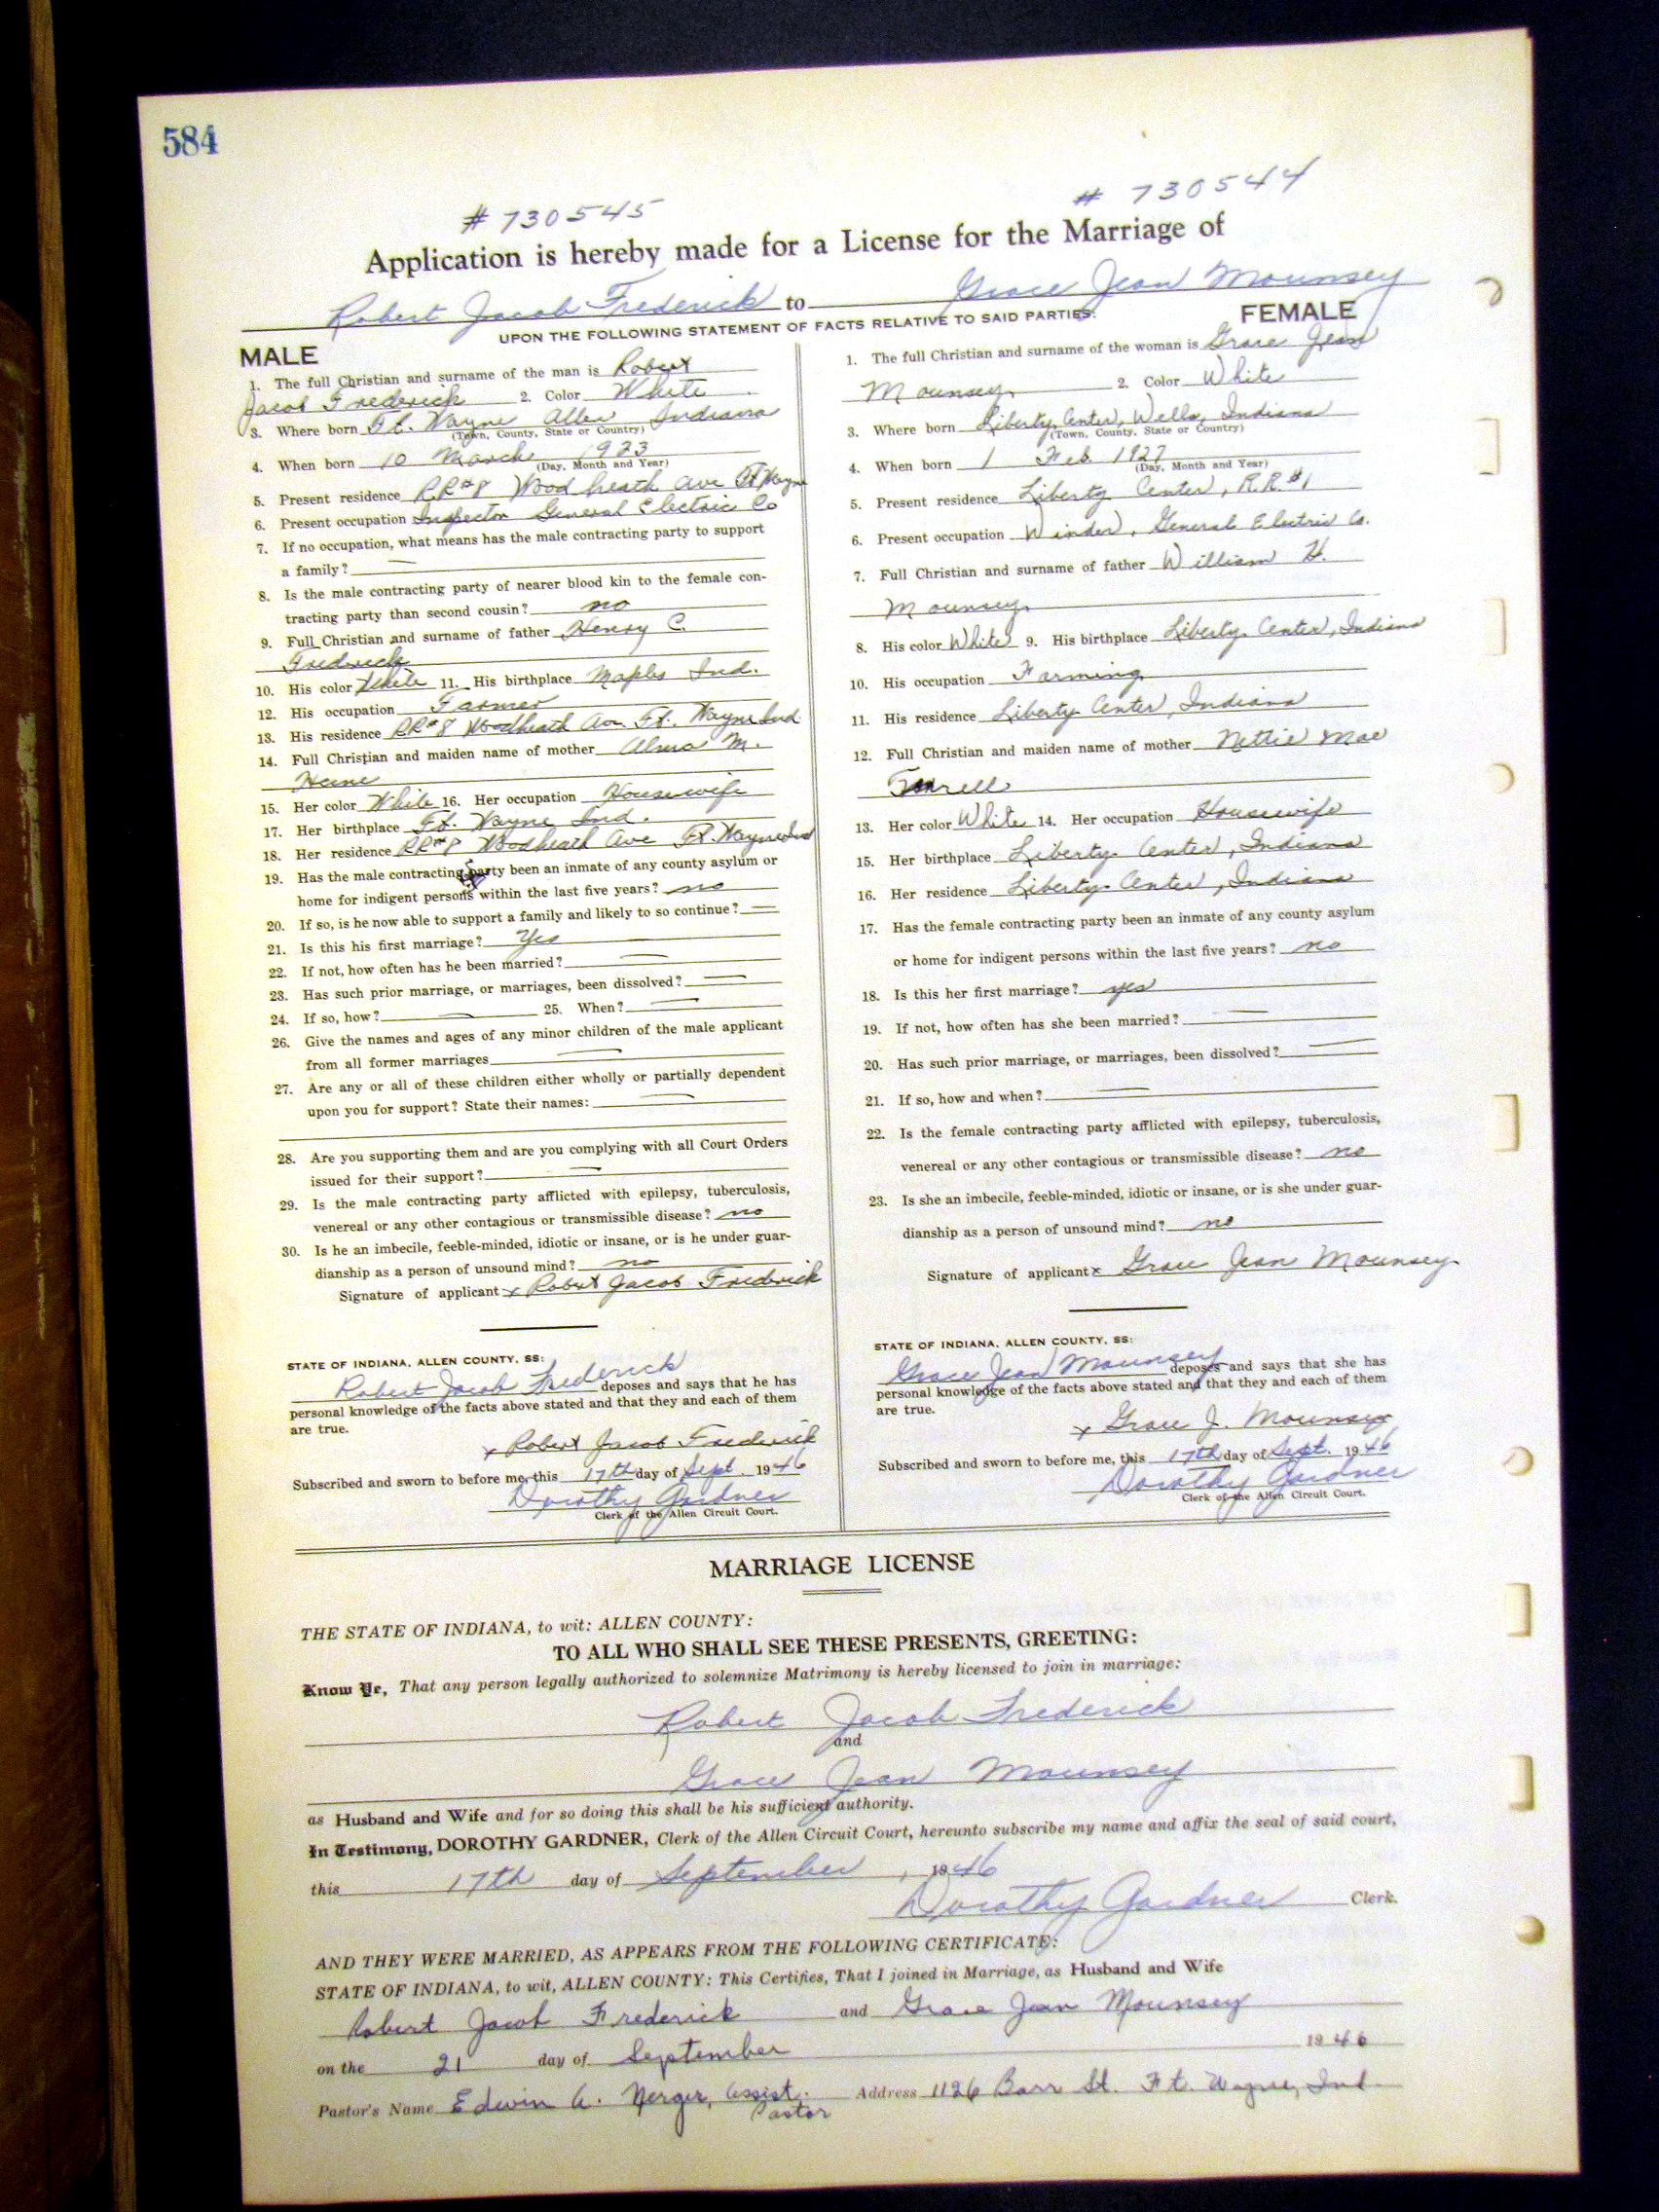 584
# 730545
# 730544
Application is hereby made for a License for the Marriage of
Robert Jacob Frederick to Grace Jean Mounsey
UPON THE FOLLOWING STATEMENT OF FACTS RELATIVE TO SAID PARTIES:
MALE
1. The full Christian and surname of the man is Robert
Jacob Frederick 2. Color White
3. Where born Ft. Wayne Allen Indiana
(Town, County, State or Country)
4. When born 10 March 1923
(Day, Month and Year)
5. Present residence RR#8 Wood heath Ave Ft Wayne
6. Present occupation Inspector General Electric Co
7. If no occupation, what means has the male contracting party to support
a family? —
8. Is the male contracting party of nearer blood kin to the female con-
tracting party than second cousin? no
9. Full Christian and surname of father Henry C.
Fredrick
10. His color White 11. His birthplace Maples Ind.
12. His occupation Farmer
13. His residence RR#8 Woodheath Ave. Ft. Wayne Ind
14. Full Christian and maiden name of mother Alma M.
Heine
15. Her color White 16. Her occupation Housewife
17. Her birthplace Ft. Wayne Ind.
18. Her residence RR#8 Woodheath Ave Ft. Wayne Ind
19. Has the male contracting party been an inmate of any county asylum or
home for indigent persons within the last five years? no
20. If so, is he now able to support a family and likely to so continue? —
21. Is this his first marriage? Yes
22. If not, how often has he been married? —
23. Has such prior marriage, or marriages, been dissolved? —
24. If so, how? — 25. When? —
26. Give the names and ages of any minor children of the male applicant
from all former marriages —
27. Are any or all of these children either wholly or partially dependent
upon you for support? State their names: —
28. Are you supporting them and are you complying with all Court Orders
issued for their support? —
29. Is the male contracting party afflicted with epilepsy, tuberculosis,
venereal or any other contagious or transmissible disease? no
30. Is he an imbecile, feeble-minded, idiotic or insane, or is he under guar-
dianship as a person of unsound mind? no
Signature of applicant x Robert Jacob Frederick
STATE OF INDIANA, ALLEN COUNTY, SS:
Robert Jacob Frederick deposes and says that he has
personal knowledge of the facts above stated and that they and each of them
are true.
x Robert Jacob Frederick
Subscribed and sworn to before me, this 17th day of Sept. 1946
Dorothy Gardner
Clerk of the Allen Circuit Court.
FEMALE
1. The full Christian and surname of the woman is Grace Jean
Mounsey 2. Color White
3. Where born Liberty Center, Wells, Indiana
(Town, County, State or Country)
4. When born 1 Feb. 1927
(Day, Month and Year)
5. Present residence Liberty Center, R.R. #1
6. Present occupation Winder, General Electric Co.
7. Full Christian and surname of father William H.
Mounsey
8. His color White 9. His birthplace Liberty Center, Indiana
10. His occupation Farming
11. His residence Liberty Center, Indiana
12. Full Christian and maiden name of mother Nettie Mae
13. Her color White 14. Her occupation Housewife
15. Her birthplace Liberty Center, Indiana
16. Her residence Liberty Center, Indiana
17. Has the female contracting party been an inmate of any county asylum
or home for indigent persons within the last five years? no
18. Is this her first marriage? yes
19. If not, how often has she been married? —
20. Has such prior marriage, or marriages, been dissolved? —
21. If so, how and when? —
22. Is the female contracting party afflicted with epilepsy, tuberculosis,
venereal or any other contagious or transmissible disease? no
23. Is she an imbecile, feeble-minded, idiotic or insane, or is she under guar-
dianship as a person of unsound mind? no
Signature of applicant x Grace Jean Mounsey
STATE OF INDIANA, ALLEN COUNTY, SS:
Grace Jean Mounsey deposes and says that she has
personal knowledge of the facts above stated and that they and each of them
are true.
x Grace J. Mounsey
Subscribed and sworn to before me, this 17th day of Sept. 1946
Dorothy Gardner
Clerk of the Allen Circuit Court.
MARRIAGE LICENSE
THE STATE OF INDIANA, to wit: ALLEN COUNTY:
TO ALL WHO SHALL SEE THESE PRESENTS, GREETING:
Know Ye, That any person legally authorized to solemnize Matrimony is hereby licensed to join in marriage:
Robert Jacob Frederick
and
Grace Jean Mounsey
as Husband and Wife and for so doing this shall be his sufficient authority.
In Testimony, DOROTHY GARDNER, Clerk of the Allen Circuit Court, hereunto subscribe my name and affix the seal of said court,
this 17th day of September, 1946
Dorothy Gardner Clerk.
AND THEY WERE MARRIED, AS APPEARS FROM THE FOLLOWING CERTIFICATE:
STATE OF INDIANA, to wit, ALLEN COUNTY: This Certifies, That I joined in Marriage, as Husband and Wife
Robert Jacob Frederick and Grace Jean Mounsey
on the 21 day of September 1946
Pastor's Name Edwin A. Nerger, Assist. Address 1126 Barr St. Ft. Wayne, Ind.
Pastor